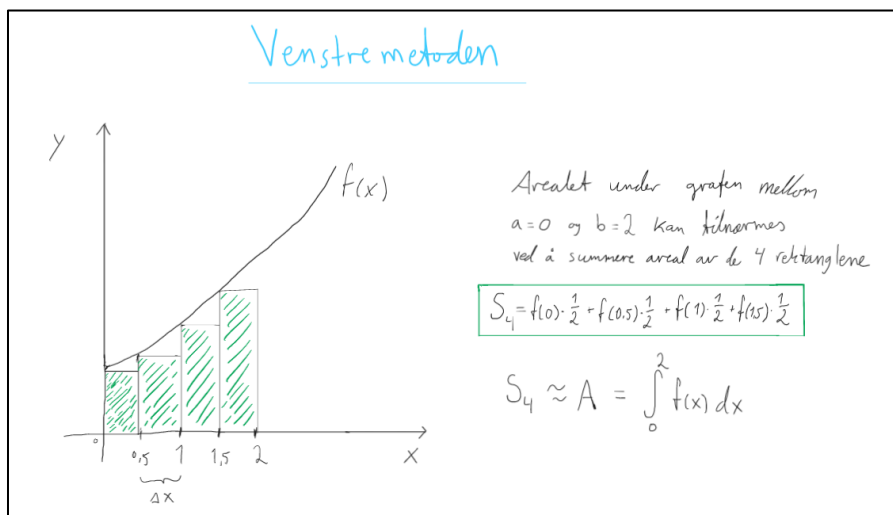 Venstremetoden
y
f(x)
0 0,5 1 1,5 2 x
Δx
Arealet under grafen mellom
a=0 og b=2 kan tilnærmes
ved å summere areal av de 4 rektanglene
S₄ = f(0)·1/2 + f(0.5)·1/2 + f(1)·1/2 + f(1.5)·1/2
S₄ ≈ A = ∫₀² f(x) dx